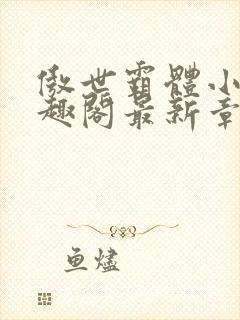 傲世霸體小
趣閣最新章
鱼燼